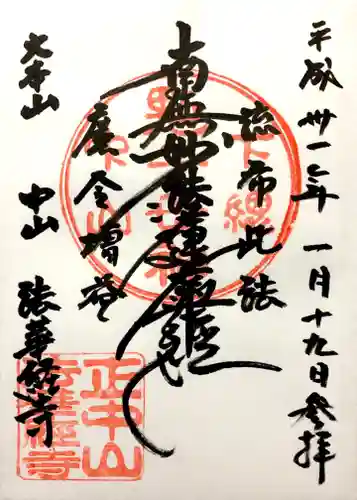 平成卅一年 一月十九日参拝
流布此法
南無妙法蓮華経
廣令増益
大本山 中山 法華経寺
正中山
法華経寺